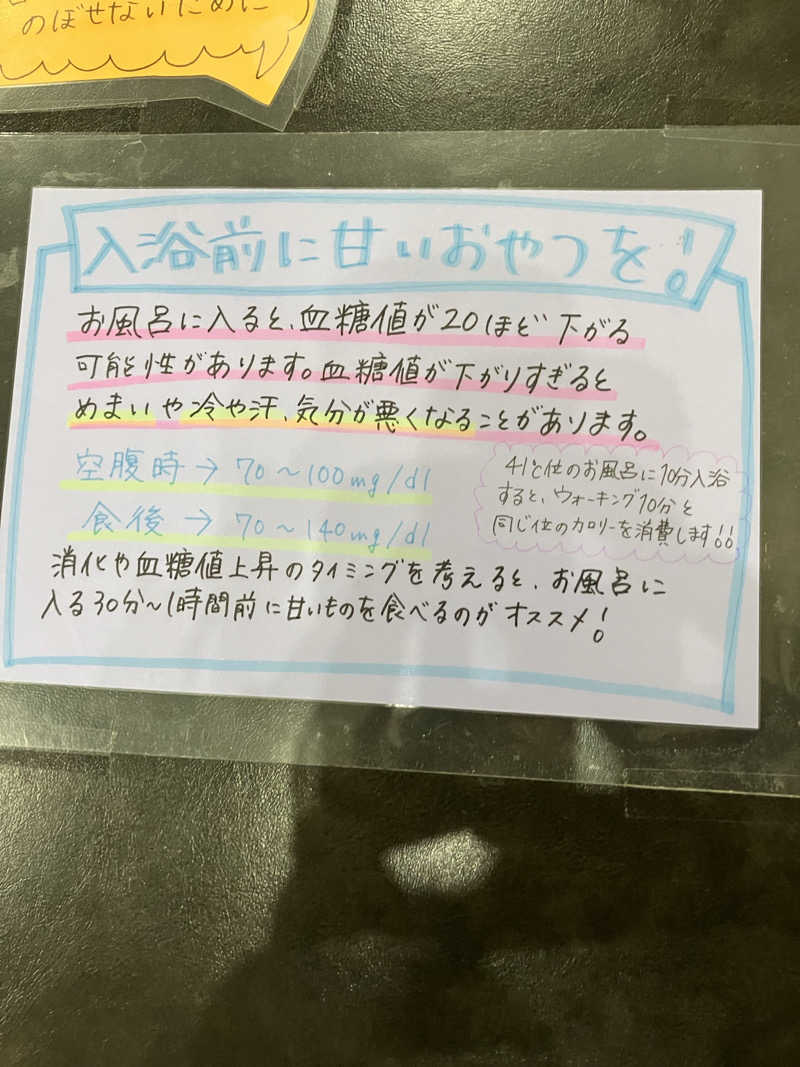 のぼせないために
入浴前に甘いおやつを!
お風呂に入ると、血糖値が20ほど下がる
可能性があります。血糖値が下がりすぎると
めまいや冷や汗、気分が悪くなることがあります。
空腹時→70～100mg/dl
食後→70～140mg/dl
41℃位のお風呂に10分入浴
すると、ウォーキング10分と
同じ位のカロリーを消費します!!
消化や血糖値上昇のタイミングを考えると、お風呂に
入る30分～1時間前に甘いものを食べるのがオススメ!